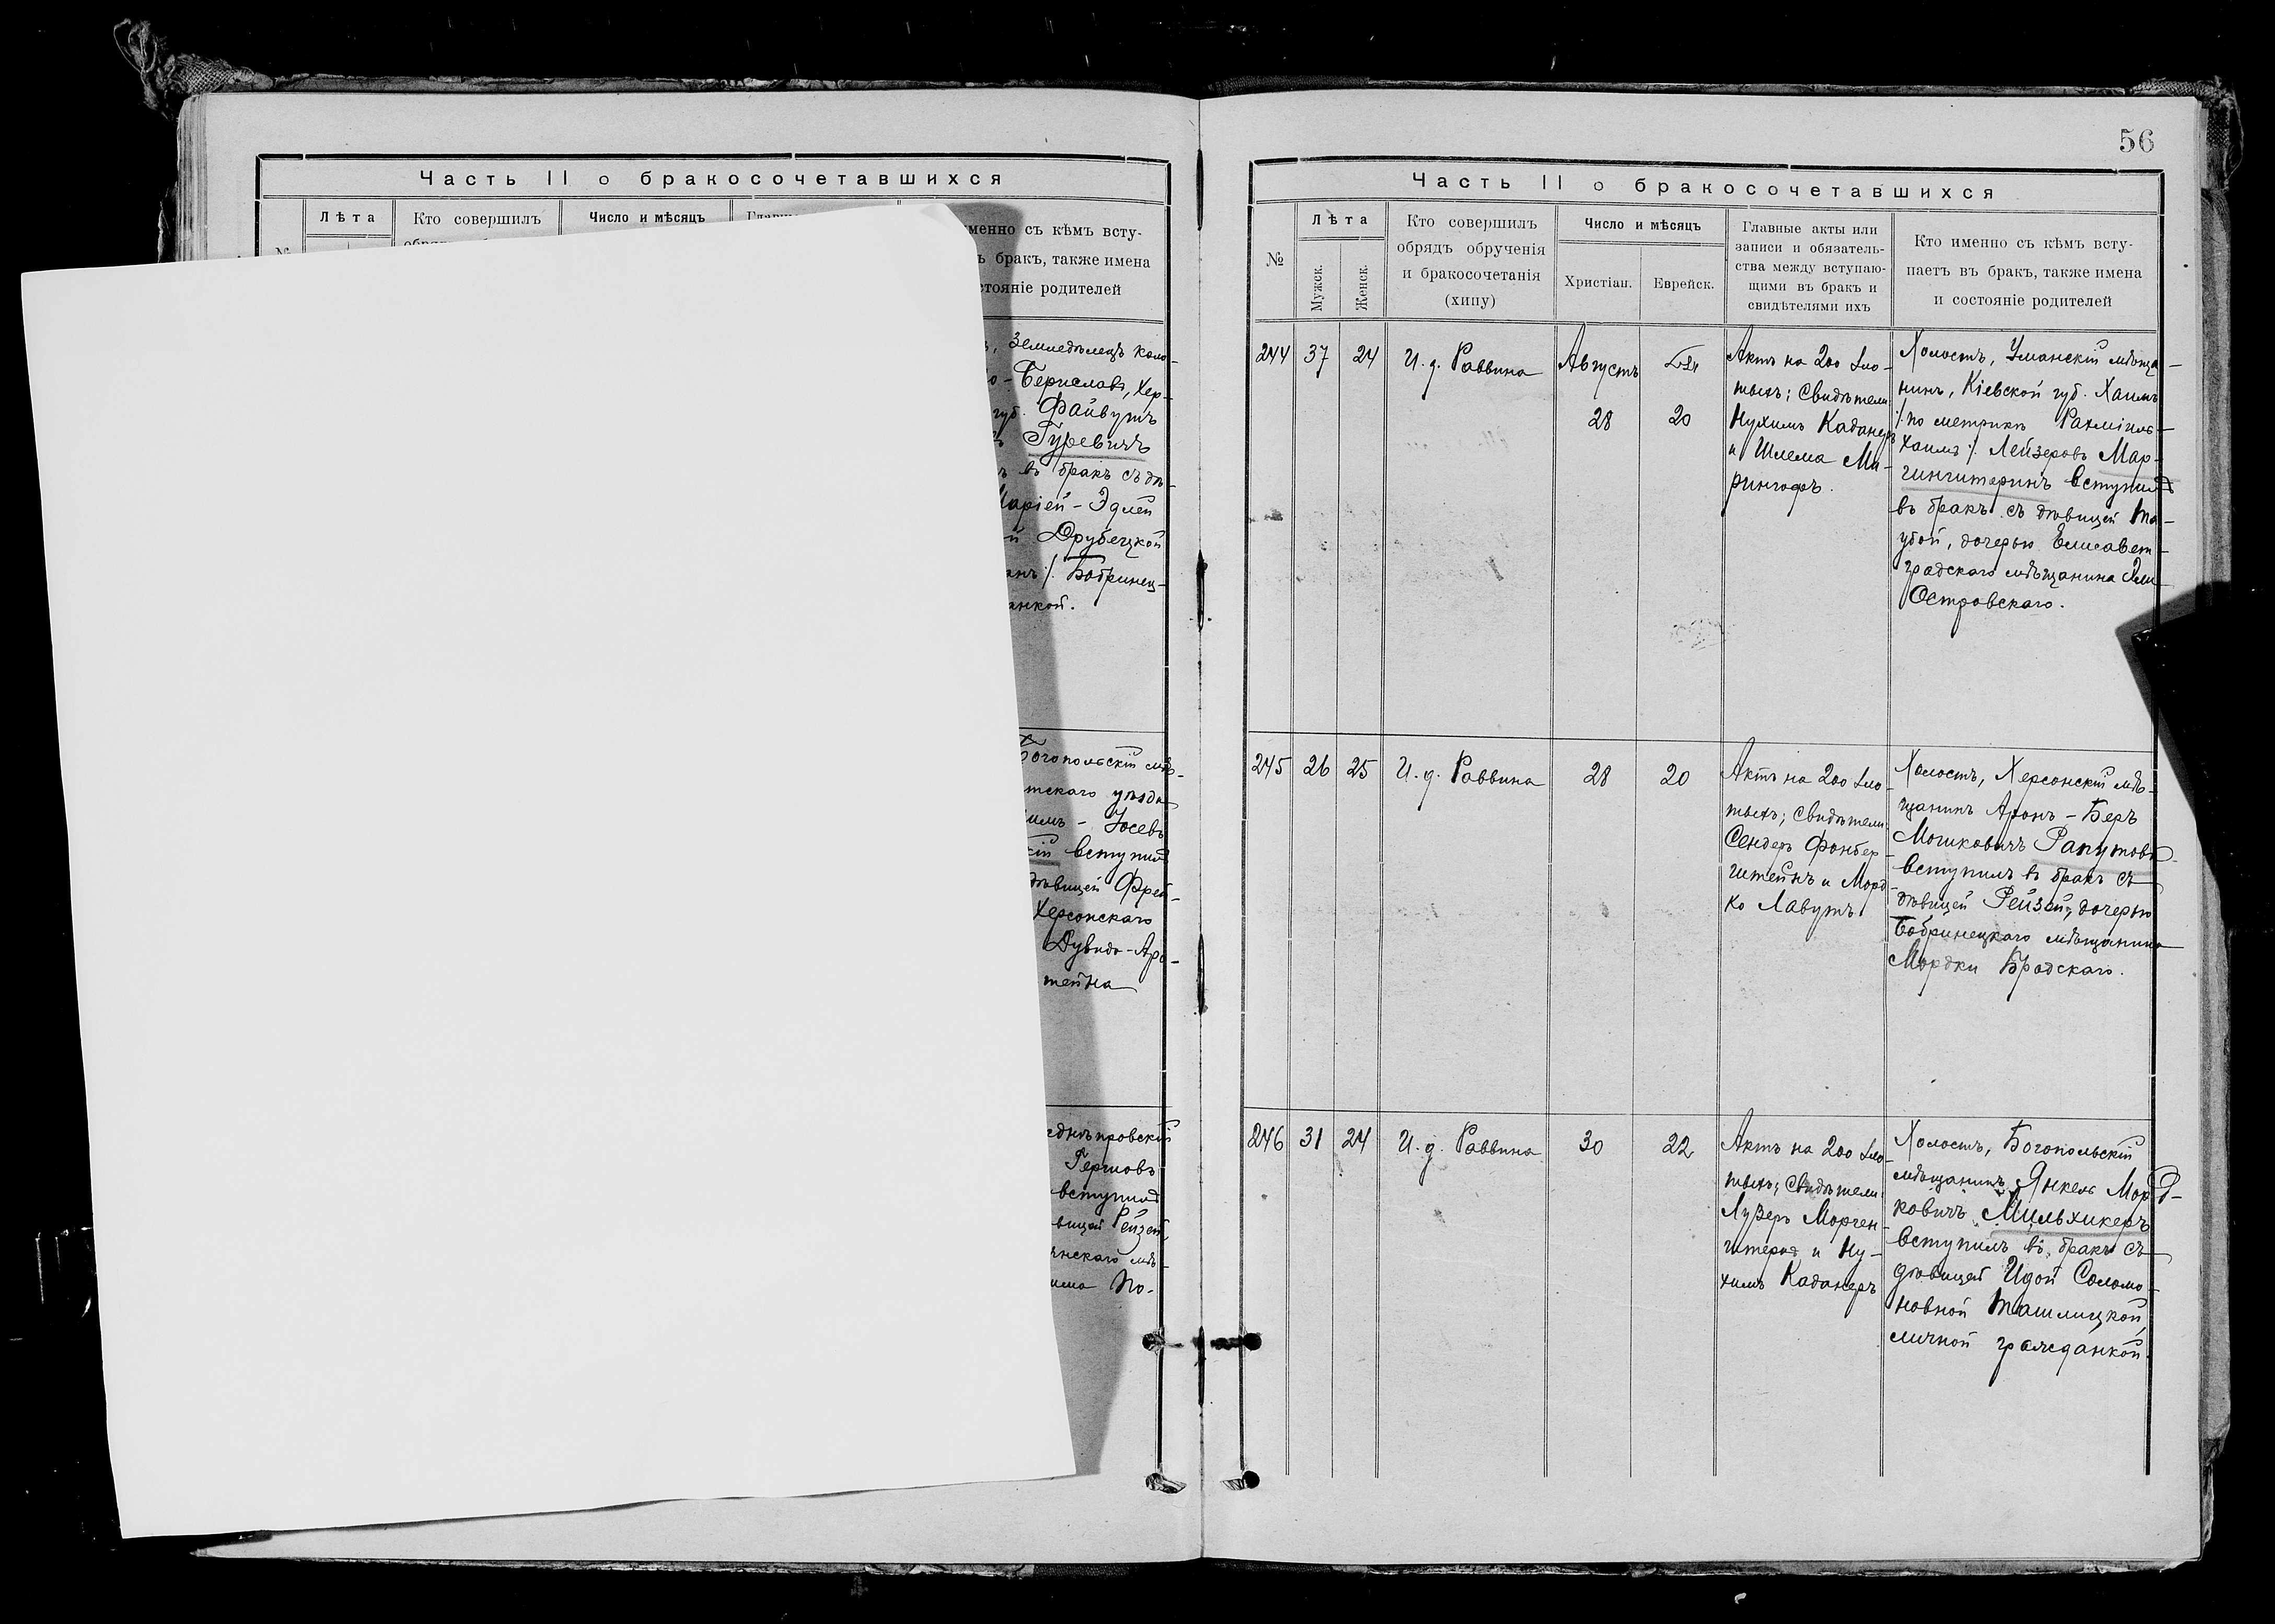 Часть II о бракосочетавшихся
Лѣта
Кто совершилъ
Число и мѣсяцъ
№
именно съ кѣмъ всту-
бракъ, также имена
стояніе родителей
Земледѣлецъ коло-
Бериславъ, Хер-
губ. Файвушъ
Гуревичъ
въ бракъ съ дѣ-
Маріей - Эдлей
Друбецкой
Бобринец-
анкой.
Богопольскій мѣ-
тскаго уѣзда
имъ - Іосевъ
кій вступилъ
дѣвицей Фрей-
Херсонскаго
Дувида - Аро-
тейна
еднѣпровскій
Гершовъ
вступилъ
вицей Рейзей
янскаго мѣ-
има По-
56
Часть II о бракосочетавшихся
№
Лѣта
Мужск.
Женск.
Кто совершилъ
обрядъ обрученія
и бракосочетанія
(хипу)
Число и мѣсяцъ
Христіан.
Еврейск.
Главные акты или
записи и обязатель-
ства между вступаю-
щими въ бракъ и
свидѣтелями ихъ
Кто именно съ кѣмъ всту-
паетъ въ бракъ, также имена
и состояніе родителей
244
37
24
И. д. Раввина
Августъ
28
20
Актъ на 200 зло-
тыхъ; Свидѣтели
Нухимъ Каданеръ
и Шлема Ми-
рингофъ.
Холостъ, Уманскій мѣща-
нинъ, Кіевской губ. Хаимъ
/: по метрикѣ Рахміиль-
Хаимъ :/ Лейзеровъ Мар-
гинштеринъ вступилъ
въ бракъ съ дѣвицей Та-
убой, дочерью Елисавет-
градскаго мѣщанина Эли
Островскаго.
245
26
25
И. д. Раввина
28
20
Актъ на 200 зло-
тыхъ; Свидѣтели:
Сендеръ Фонбер-
штейнъ и Морд-
ко Лавутъ
Холостъ, Херсонскій мѣ-
щанинъ Аронъ - Беръ
Мошковичъ Рапутовъ
вступилъ въ бракъ съ
дѣвицей Рейзей, дочерью
Бобринецкаго мѣщанина
Мордки Бродскаго.
246
31
24
И. д. Раввина
30
22
Актъ на 200 зло-
тыхъ; Свидѣтели:
Лузеръ Морген-
штернъ и Ну-
химъ Каданеръ
Холостъ, Богопольскій
мѣщанинъ Янкель Морд-
ковичъ Мильхикеръ
вступилъ въ бракъ съ
дѣвицей Идой Соломо-
новной Ташлицкой,
личной гражданкой.